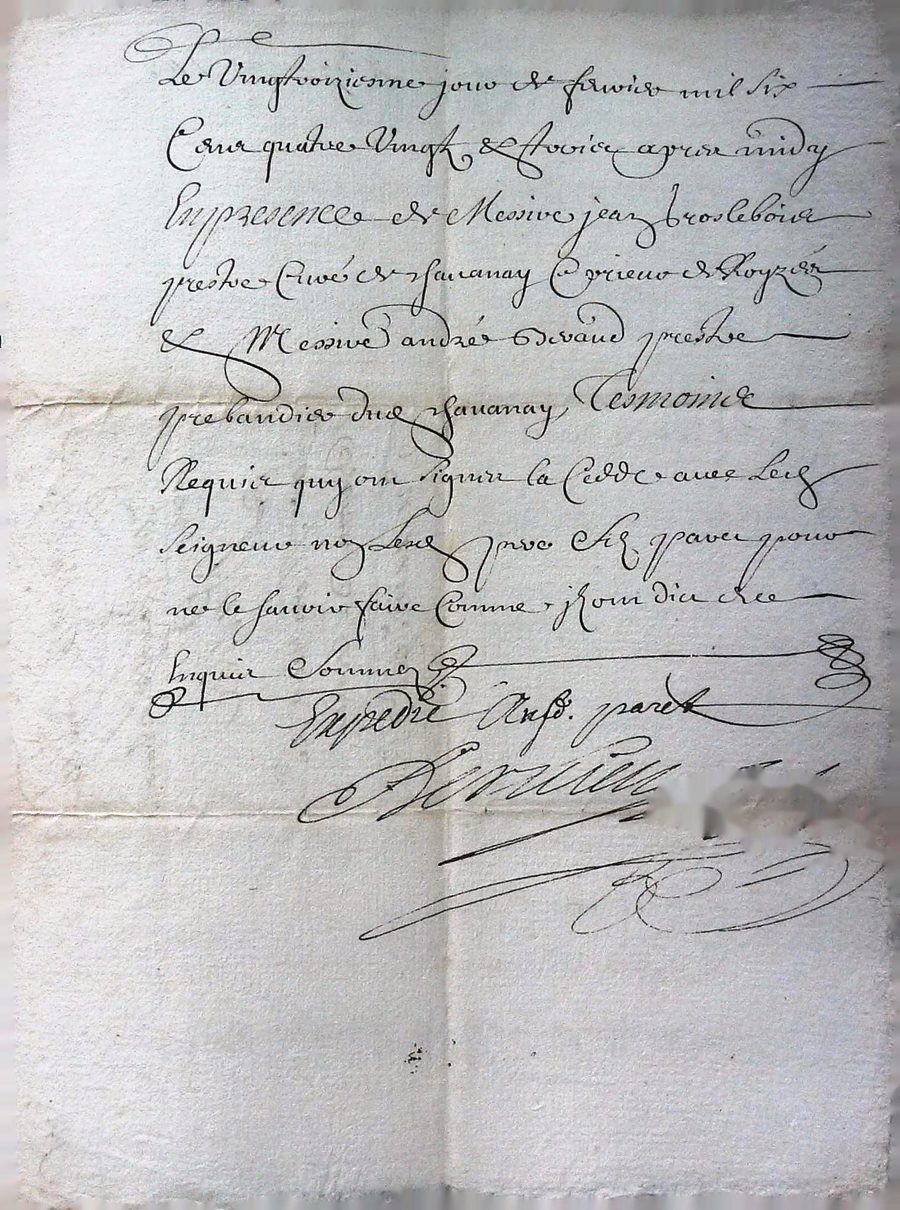 Le Vingtroizienne jour de fevrier mil six
Cens quatre Vingtz & trois apres midy
En presence de Messire jean
prestre Curé de chavanay & prieur de
& Messire andré Giraud prestre
prebandier dud chavanay Tesmoins
Requis quy ont signer la Cedde avec Led
seigneur non Lesd paret pour
ne le scavoir faire Comme ilz ont dict de ce
Enquis & Sommez
Expedié paret